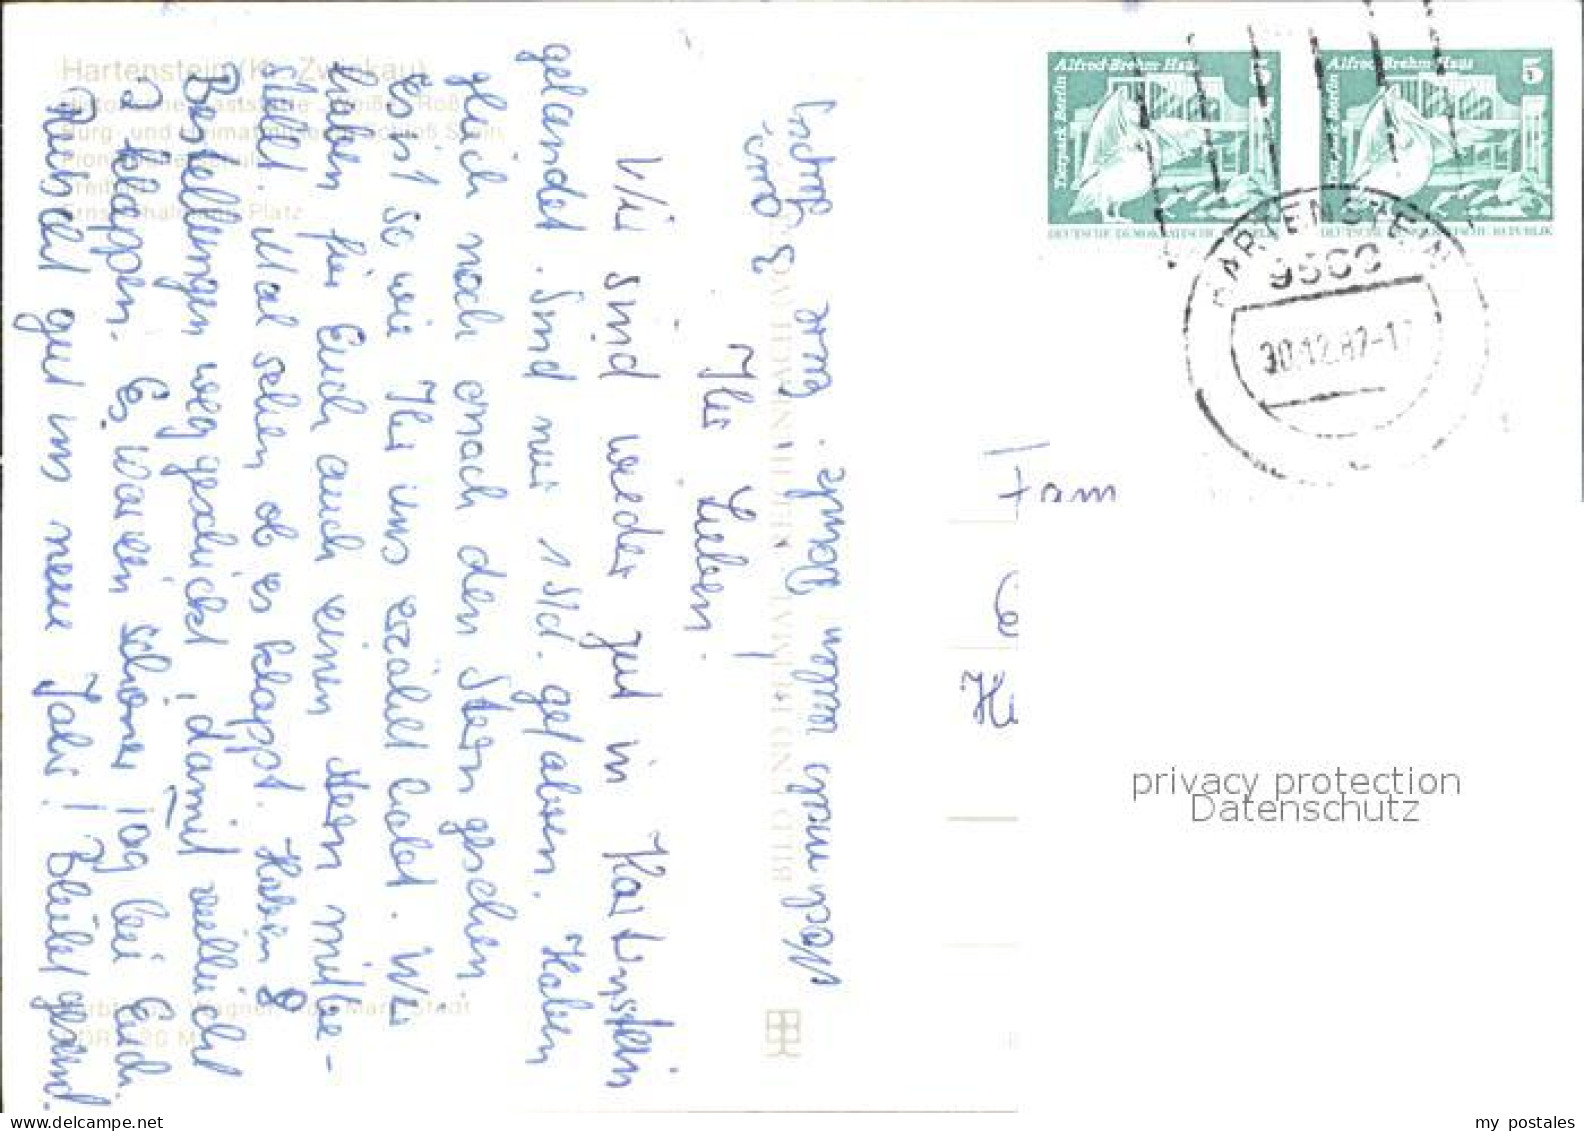 Hartenstein (Kr. Zwickau)
Historische Gaststätte "Weißes Roß"
Burg- und Heimatmuseum Schloß Stein
Ernst-Thälmann-Platz
Ihr Lieben!
Wir sind wieder gut in Hartenstein
gelandet. Sind nur 1 Std. gefahren. Haben
gleich noch nach den Stern gesehen.
Es ist so wie Ihr uns erzählt habet. Wir
haben für Euch auch einen Stern mitbe-
stellt. Mal sehen ob es klappt. Haben 8
Bestellungen weg geschickt, damit vielleicht
2 klappen. Es war ein schöner Tag bei Euch.
Rutscht gut ins neue Jahr! Bleibt gesund.
Nochmals vielen Dank. Eure
BILD UND HEIMAT REICHENBACH
Fam
Alfred-Brehm-Haus
Tierpark Berlin
5
DEUTSCHE DEMOKRATISCHE REPUBLIK
Alfred-Brehm-Haus
Tierpark Berlin
5
DEUTSCHE DEMOKRATISCHE REPUBLIK
HARTENSTEIN
30.12.87-1
privacy protection
Datenschutz
my postales
www.delcampe.net